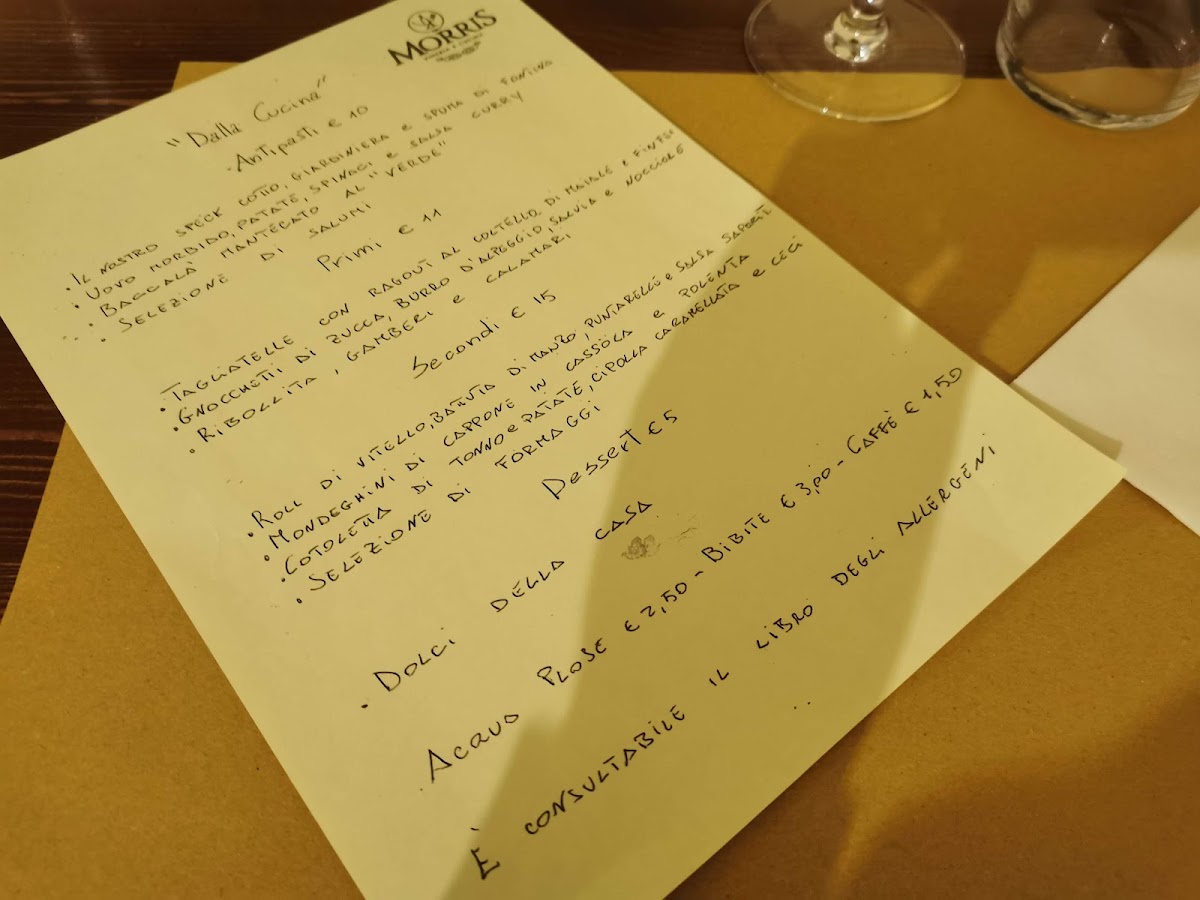 MORRIS
"Dalla Cucina"
·Antipasti € 10
· IL NOSTRO SPECK COTTO, GIARDINIERA E SPUMA DI FONTINA
· UOVO MORBIDO, PATATE, SPINACI E SALSA CURRY
· BACCALA' MANTECATO AL "VERDE"
· SELEZIONE DI SALUMI
Primi € 11
· TAGLIATELLE CON RAGOUT AL COLTELLO DI MAIALE E
· GNOCCHETTI DI ZUCCA, BURRO D'ALPEGGIO, SALVIA E NOCCIOLE
· RIBOLLITA, GAMBERI E CALAMARI
Secondi € 15
· ROLL DI VITELLO, BATTUTA DI MANZO, PUNTARELLE E SALSA
· MONDEGHINI DI CAPPONE IN CASSÖLA E POLENTA
· COTOLETTA DI TONNO E PATATE, CIPOLLA CARAMELLATA E CECI
· SELEZIONE DI FORMAGGI
Dessert € 5
· DOLCI DELLA CASA
ACQUA PLOSE € 2,50 - BIBITE € 3,00 - CAFFÈ € 1,50
È CONSULTABILE IL LIBRO DEGLI ALLERGENI